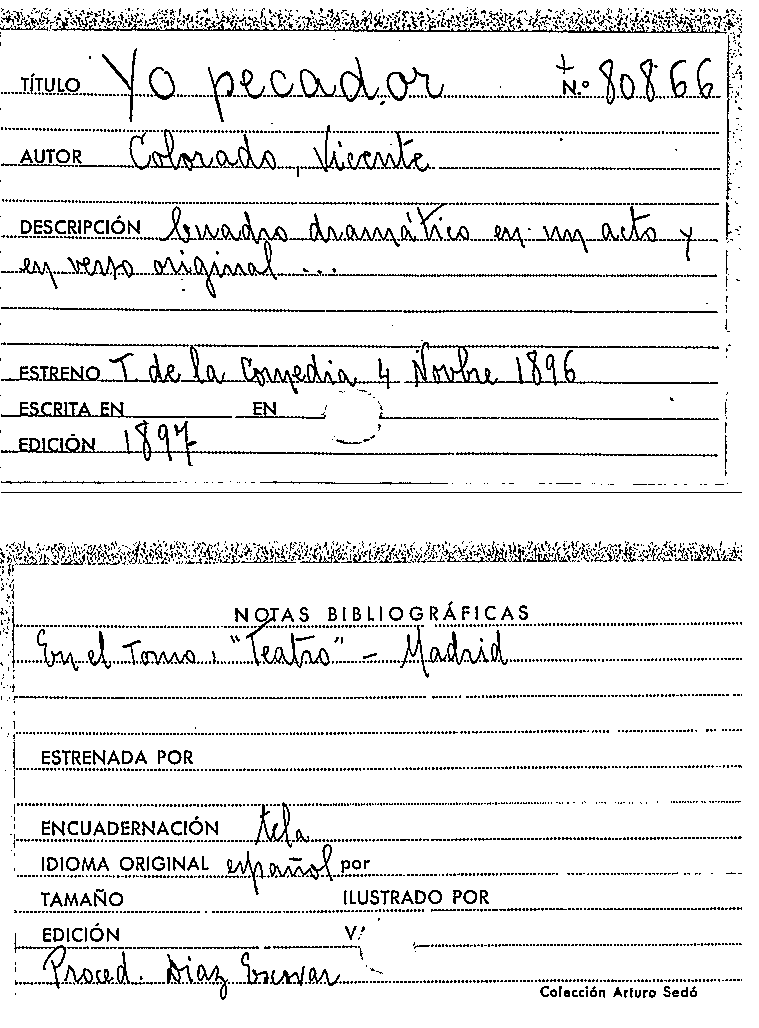 TÍTULO Yo pecador + N.º 80866
AUTOR Colorado, Vicente
DESCRIPCIÓN Cuadro dramático en un acto y
en verso original ...
ESTRENO T. de la Comedia 4 Novbre 1896
ESCRITA EN EN
EDICIÓN 1897
NOTAS BIBLIOGRÁFICAS
En el Tomo: "Teatro" - Madrid
ESTRENADA POR
ENCUADERNACIÓN tela
IDIOMA ORIGINAL español por
TAMAÑO ILUSTRADO POR
EDICIÓN
Proced. Diaz Escovar
Colección Arturo Sedó